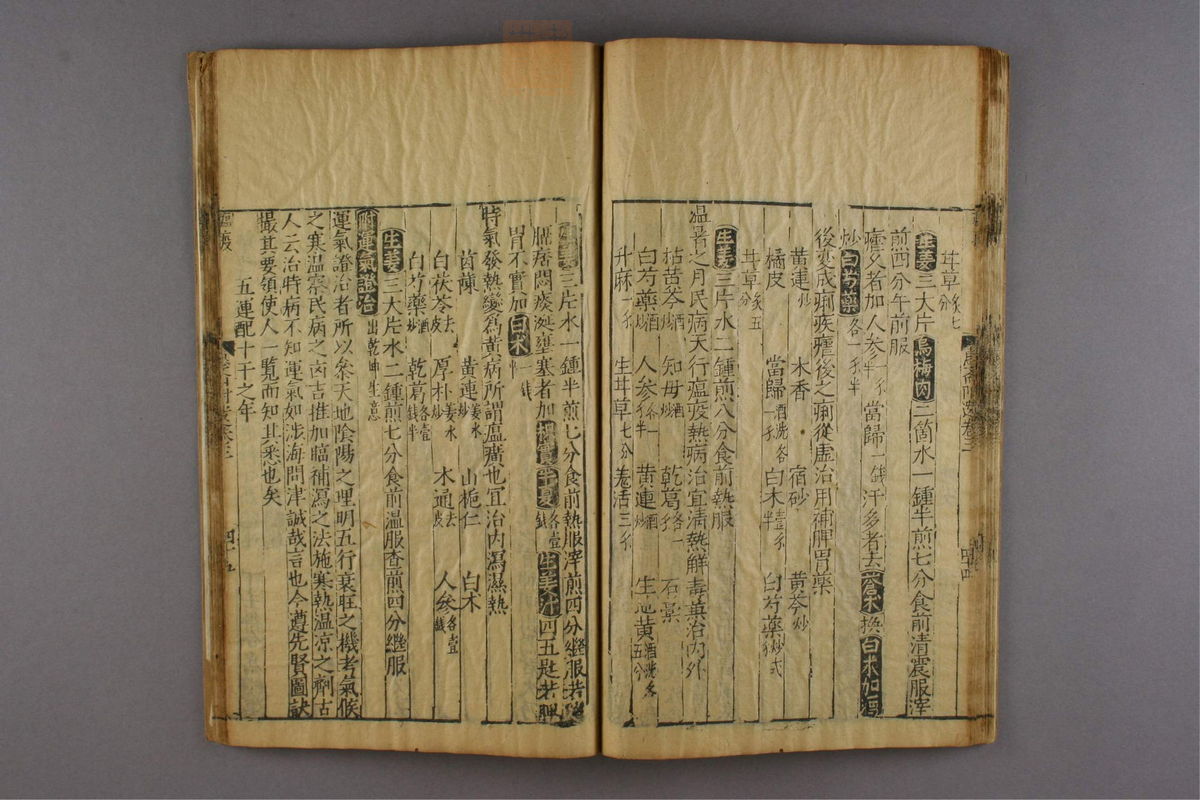 甘草 七分
生姜三大片烏梅肉二箇水一鍾半煎七分食前清晨服滓
煎四分午前服
瘧久者加人參一錢半當歸一錢汗多者去蒼术換白术加
炒白芍藥各一錢半
後变成痢疾瘧後之痢從虛治用補脾胃藥
黄連炒 木香 宿砂 黄芩炒
橘皮 當歸酒洗各一錢 白术壹錢半 白芍藥炒
甘草炙五分
生姜三片水二鍾煎八分食前熱服
温暑之月民病天行瘟疫熱病治宜清熱解毒兼治内外
括蔞芩酒炒 知母酒炒 乾葛各一錢 石羔
白芍藥酒炒 人參各一錢半 黄連酒炒 生地黄酒洗各五分
升麻一錢 生甘草七分 羌活三錢
四十四
生姜三片水一鍾半煎七分食前熱服滓煎四分繼服若
膈痞悶痰涎壅塞者加枳實半夏各壹錢生姜汁四五匙若脾
胃不實加白术一錢
時氣發熱變爲黄病所謂瘟癀也宜治内瀉濕熱
茵蔯 黄連姜水炒 山梔仁 白术
白茯苓去皮 厚朴姜水炒 木通去皮 人參各壹錢
白芍藥酒炒 乾葛各壹錢半
生姜三大片水二鍾煎七分食前温服査煎四分繼服
附運氣證治 出乾坤生意
運氣證治者所以參天地陰陽之理明五行衰旺之機考氣候
之寒温察民病之㐫吉推加臨補瀉之法施寒熱温凉之劑古
人云治時病不知運氣如涉海問津誠哉言也今遵先賢圖訣
撮其要領使人一覧而知其悉也矣
五運配十干之年
四十五